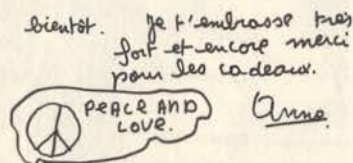 bientôt. Je t'embrasse très
fort et encore merci
pour les cadeaux.
PEACE AND
LOVE.
Anne